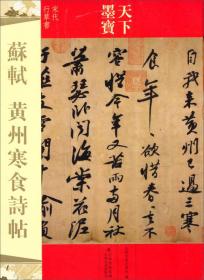 天下
墨寶
宋代
行草書
蘇軾 黃州寒食詩帖
自我來黃州已過三寒
食年〻欲惜春〻去不
容惜今年又苦雨兩月秋
蕭瑟臥聞海棠花泥